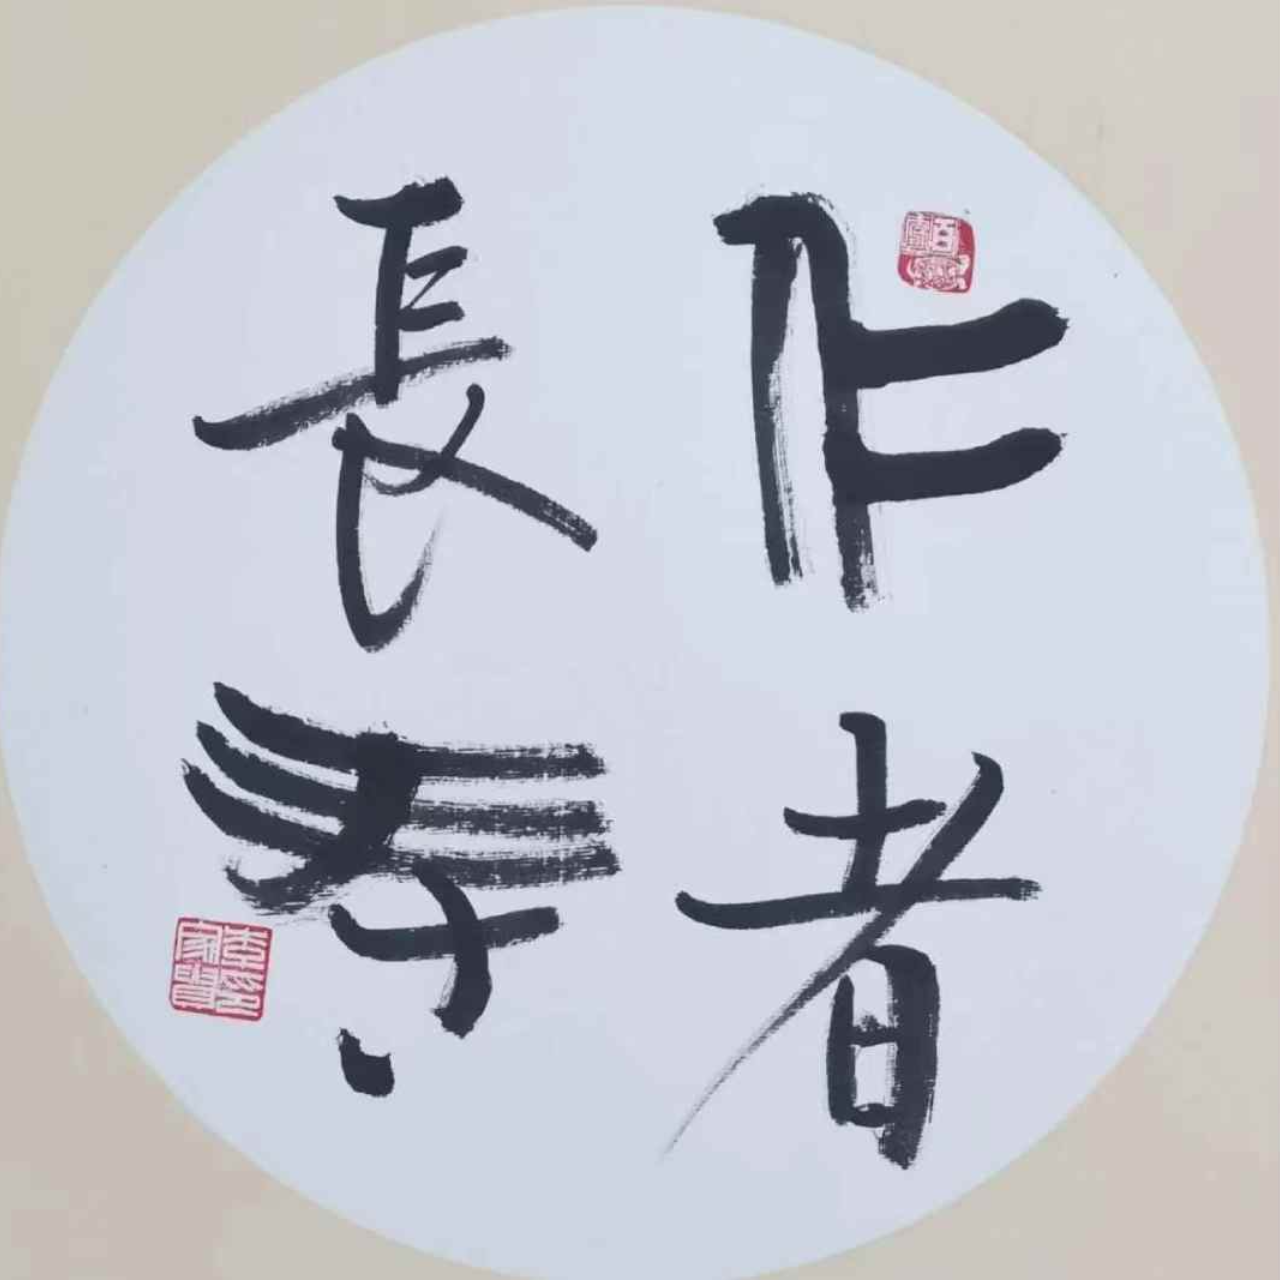 仁者
長壽